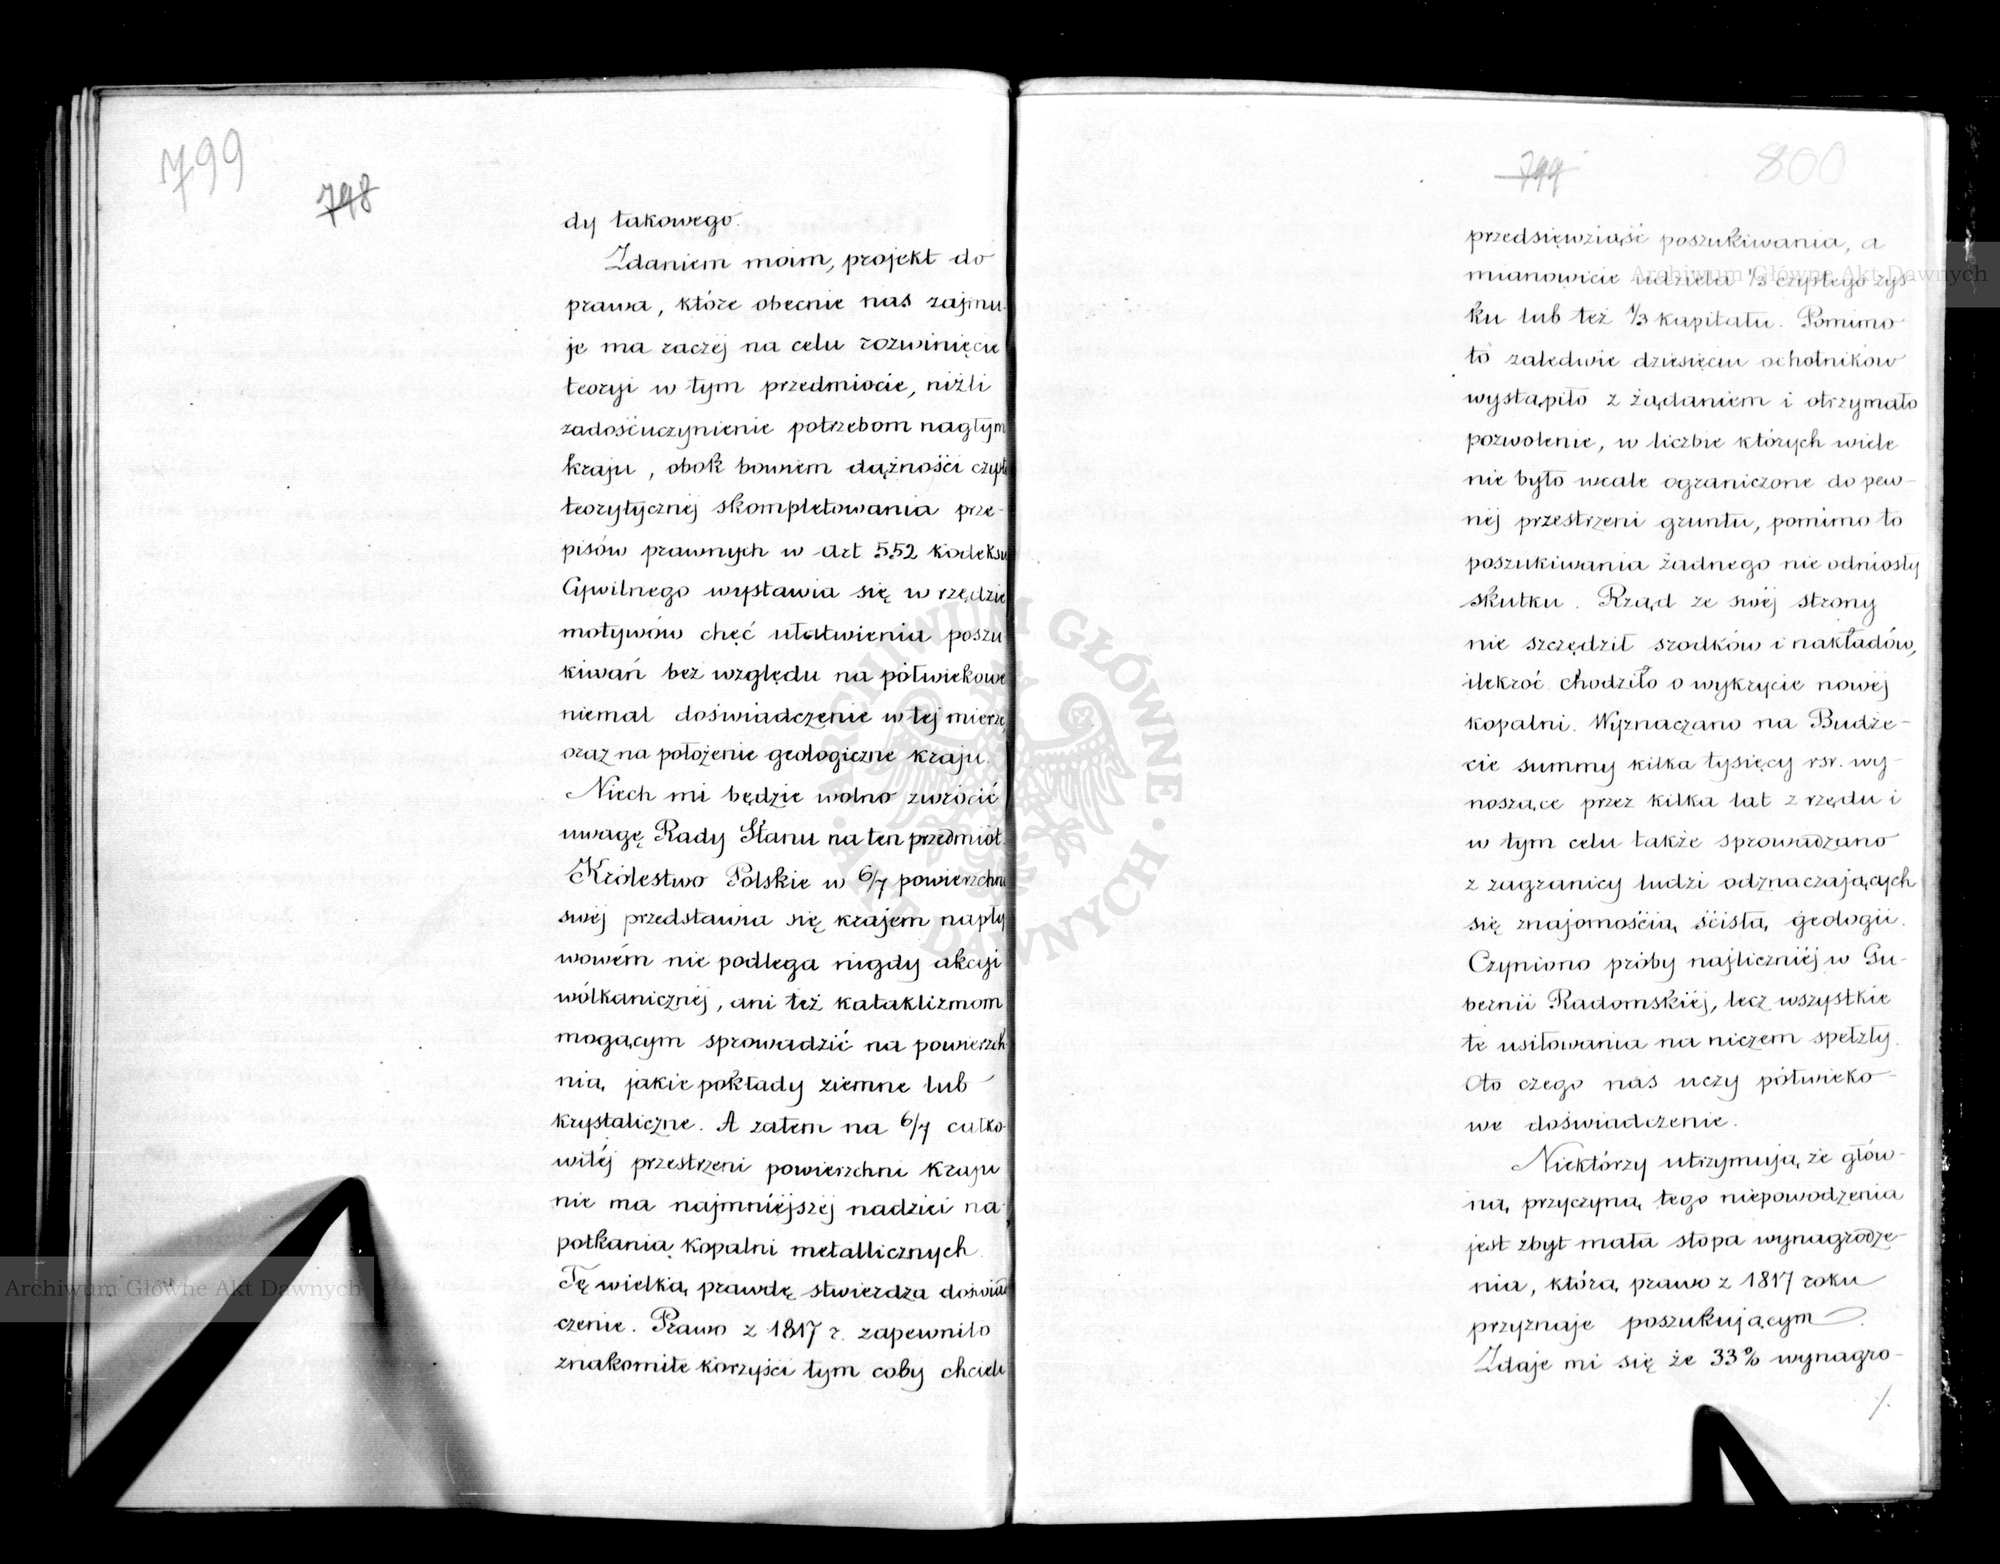 799
798
dy takowego.
Zdaniem moim, projekt do
prawa, które obecnie nas zajmu-
je ma raczej na celu rozwinięcie
teoryi w tym przedmiocie, niźli
zadośćuczynienie potrzebom nagłym
kraju, obok bowiem dążności czysto
teorytycznej skompletowania prze-
pisów prawnych w Art 552 kodeksu
Cywilnego wystawia się w rzędzie
motywów chęć ułatwienia poszu
kiwań bez względu na półwiekowe
niemal doświadczenie w tej mierze,
oraz na położenie geologiczne kraju.
Niech mi będzie wolno zwrócić
uwagę Rady Stanu na ten przedmiot.
Królestwo Polskie w 6/7 powierzchni
swéj przedstawia się krajem napły
wowém nie podlega nigdy akcyi
wólkanicznéj, ani też kataklizmom
mogącym sprowadzić na powierzch
nią jakie pokłady ziemne lub
krystaliczne. A zatem na 6/7 całko-
witéj przestrzeni powierzchni kraju
nie ma najmniéjszéj nadziei na-
potkania kopalni metallicznych.
Tę wielką prawdę stwierdza doświad
czenie. Prawo z 1817 r. zapewniło
znakomite korzyści tym coby chcieli
799
800
przedsięwziąść poszukiwania, a
mianowicie udziela 1/3 czystego zys-
ku lub też 1/3 kapitału. Pomimo
to zaledwie dziesięciu ochotników
wystąpiło z żądaniem i otrzymało
pozwolenie, w liczbie których wiele
nie było wcale ograniczone do pew-
néj przestrzeni gruntu, pomimo to
poszukiwania żadnego nie odniosły
skutku. Rząd ze swéj strony
nie szczędził srodków i nakładów,
ilekroć chodziło o wykrycie nowéj
kopalni. Wyznaczano na Budże-
cie summy kilka tysięcy rsr. wy-
noszące przez kilka lat z rzędu i
w tym celu także sprowadzano
z zagranicy ludzi odznaczających
się znajomością ścisłą geologii.
Czyniono próby najliczniéj w Gu-
bernii Radomskiéj, lecz wszystkie
te usiłowania na niczem spełzły.
Oto czego nas uczy półwieko-
we doświadczenie.
Niektórzy utrzymują, że głów-
ną przyczyną tego niepowodzenia
jest zbyt mała stopa wynagrodze-
nia, którą prawo z 1817 roku
przyznaje poszukującym.
Zdaje mi się że 33% wynagro-
./.
Archiwum Główne Akt Dawnych
Archiwum Główne Akt Dawnych
ARCHIWUM GŁÓWNE · AKT DAWNYCH ·